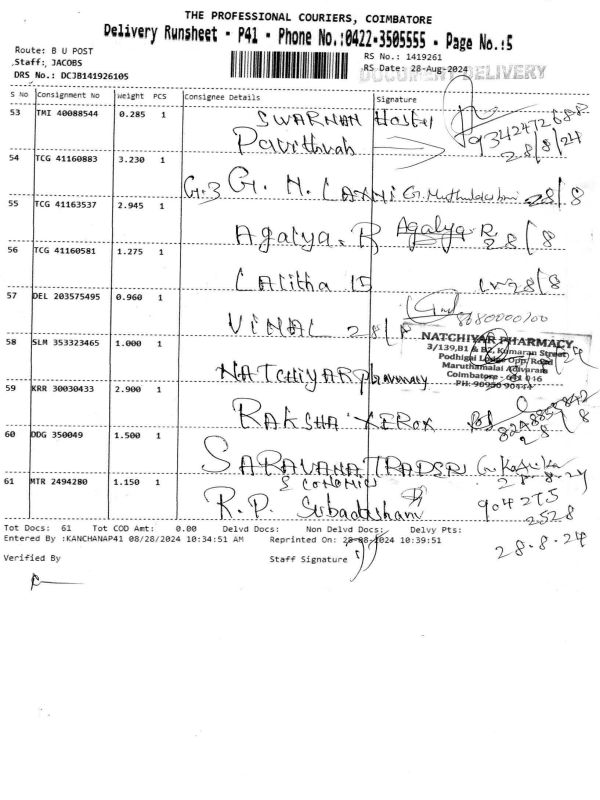 THE PROFESSIONAL COURIERS, COIMBATORE
Delivery Runsheet - P41 - Phone No.:0422-3505555 - Page No.:5
Route: B U POST
RS No.: 1419261
Staff: JACOBS
RS Date: 28-Aug-2024
DRS No.: DCJB141926105
DOCUMENT DELIVERY
S No Consignment No Weight PCS Consignee Details Signature
53 TMI 40088544 0.285 1 SWARNAM Hostel
Pavithrah 9342472688
28/8/24
54 TCG 41160883 3.230 1
G.3 G. M. LAXMI G. Muthulakshmi 28/8
55 TCG 41163537 2.945 1
Agalya. R Agalya. R 28/8
56 TCG 41160581 1.275 1
Lalitha 15 28/8
57 DEL 203575495 0.960 1
VIMAL 28/8 8680000100
58 SLM 353323465 1.000 1
NATCHIYAR pharmacy
NATCHIYAR PHARMACY
3/139,B1 & B2, Kumaran Street
Podhigai Lodge Opp/Road
Maruthamalai Adivaram
Coimbatore - 641 046
PH: 90950 90444
59 KRR 30030433 2.900 1
RAKSHA XEROX 8248859842
28/8
60 DDG 350049 1.500 1
SARAVANA TRADSR
28-8-24
61 MTR 2494280 1.150 1 ECONOMICS
R.P. Subadasham 904275
2528
28-8-24
Tot Docs: 61 Tot COD Amt: 0.00 Delvd Docs: Non Delvd Docs: Delvy Pts:
Entered By :KANCHANAP41 08/28/2024 10:34:51 AM Reprinted On: 28-08-2024 10:39:51
Verified By Staff Signature